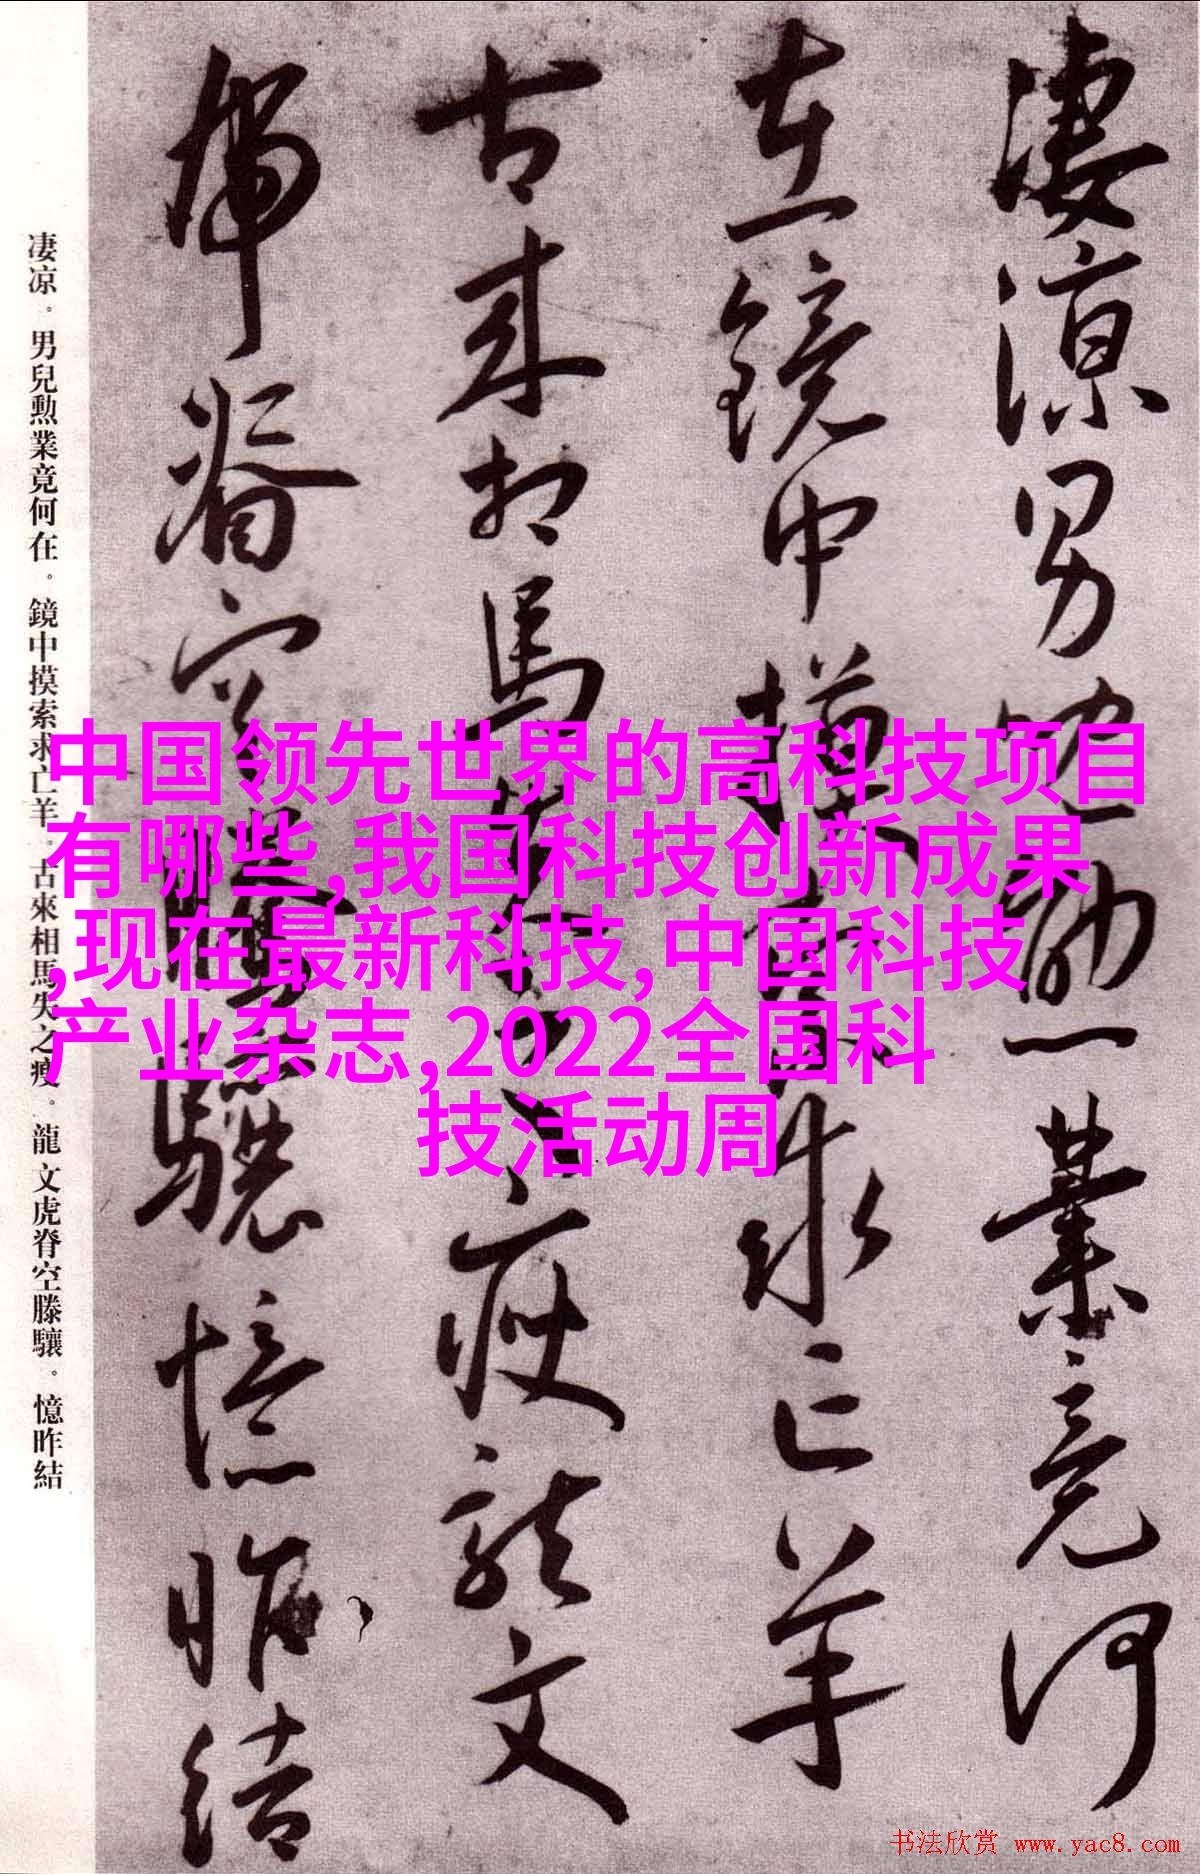 凄涼男兒勳業竟何
在鏡中摸索求亡羊
古來相馬失之瘦龍文
虎脊空騰驤憶昨結
凄凉。男兒勳業竟何在。鏡中摸索求亡羊。古來相馬失之瘦。龍文虎脊空滕驤。憶昨結
中国领先世界的高科技项目
有哪些,我国科技创新成果
,现在最新科技,中国科技
产业杂志,2022全国科
技活动周
书法欣赏 www.yac8.com